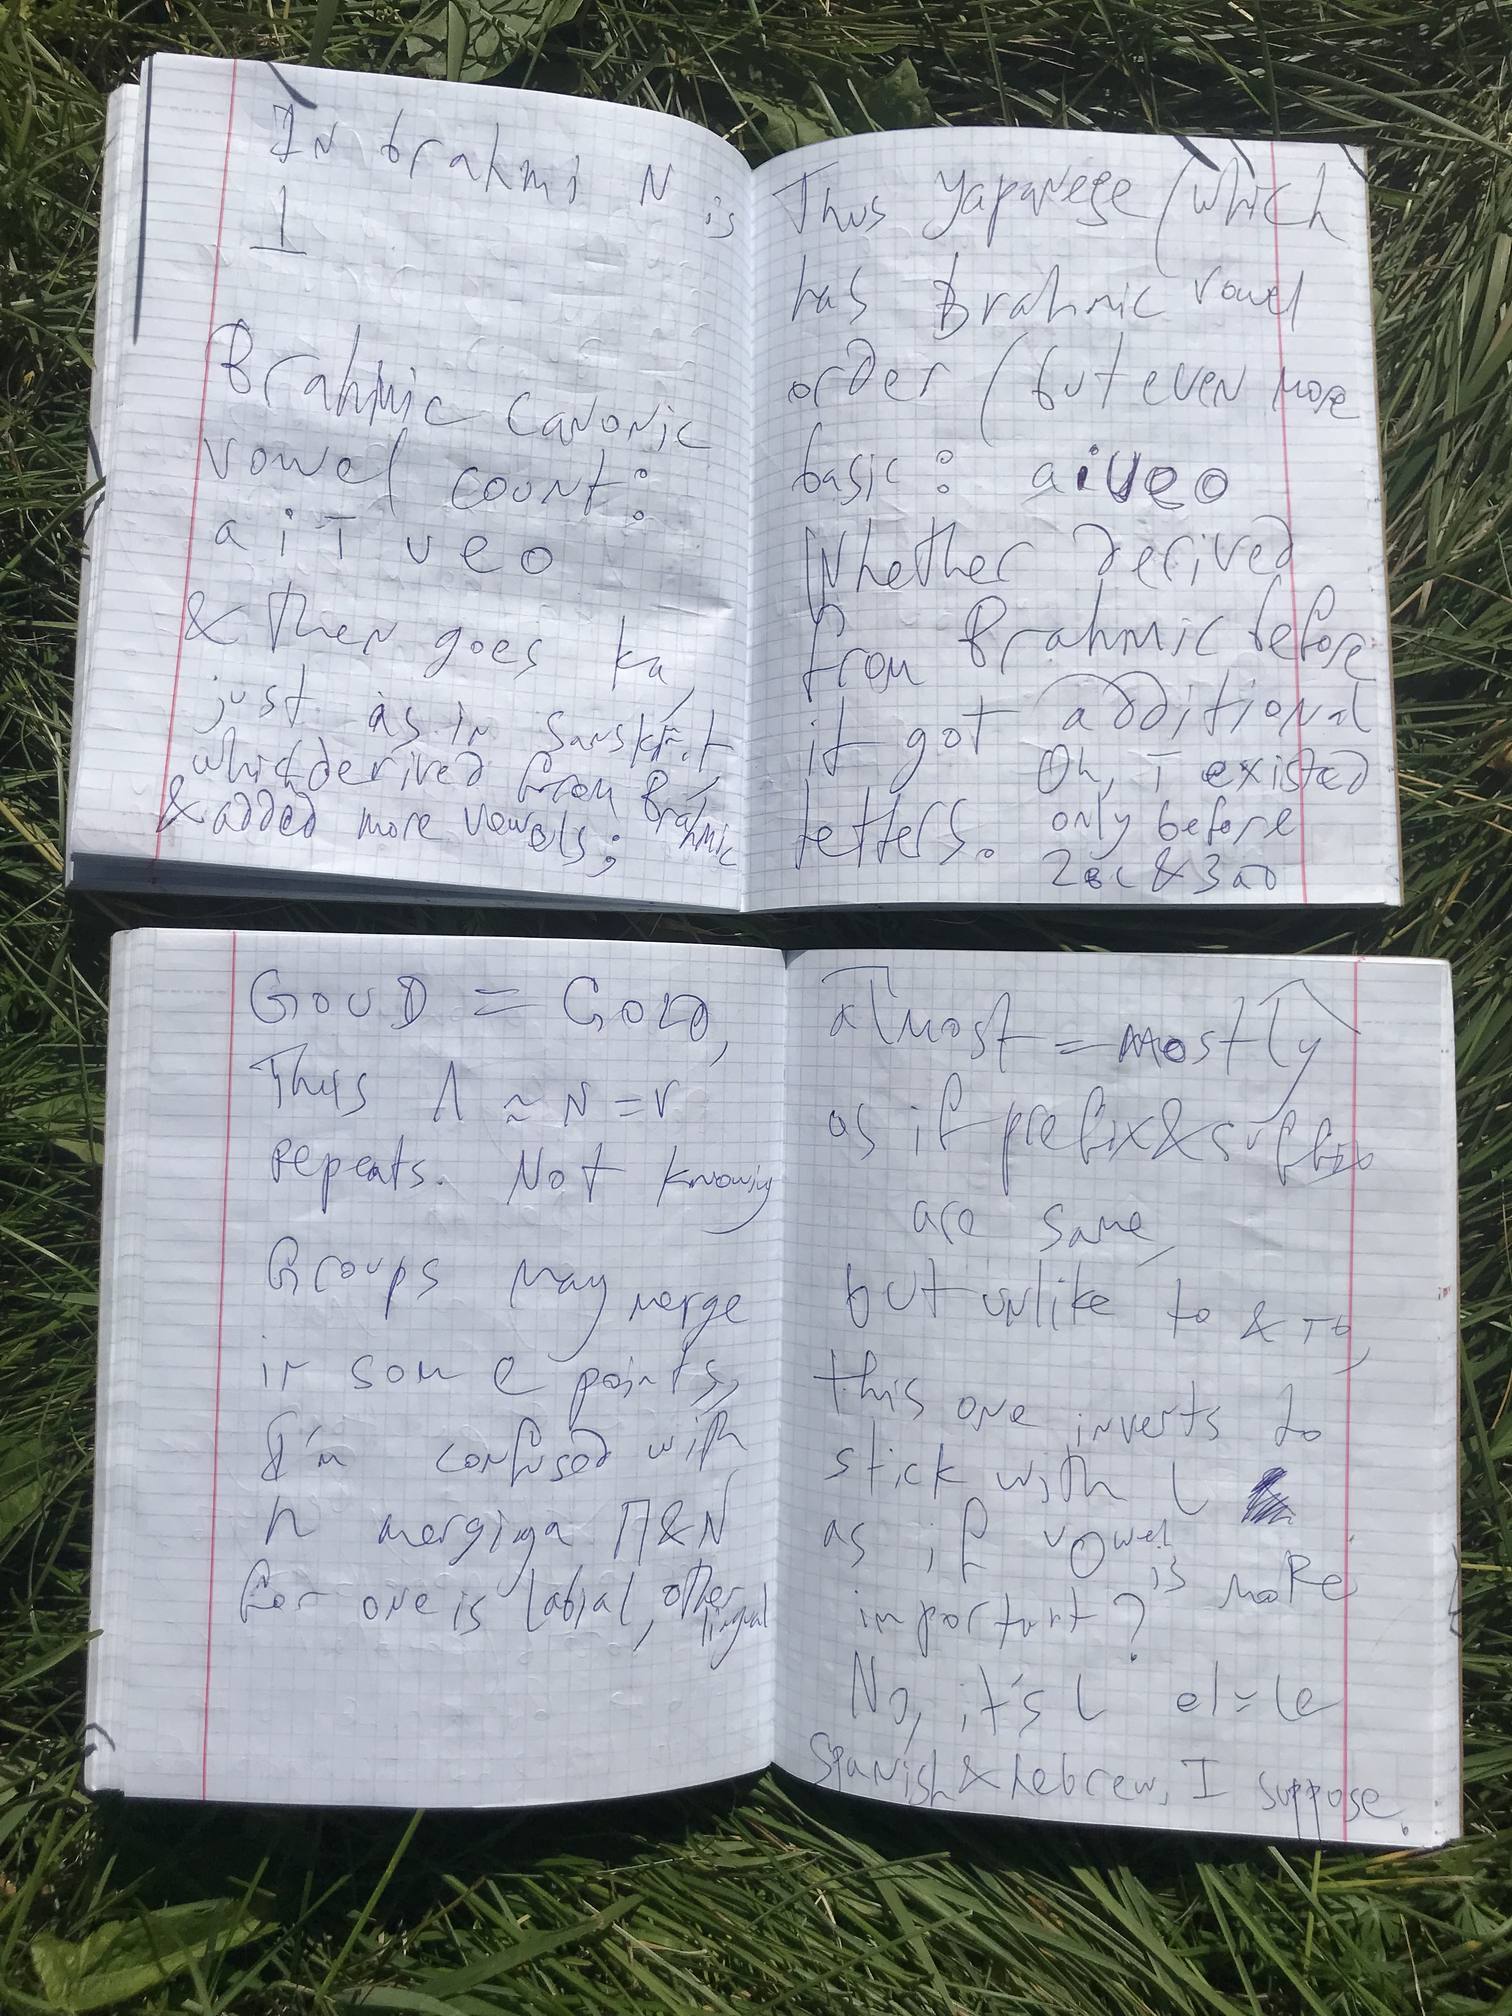 In brahmi N is
⊥
Brahmic canonic
vowel count:
a i T u e o
& then goes ka,
just as in Sanskrit,
which derived from Brahmic
& added more vowels;
Thus Yapanese (which
has Brahmic vowel
order (but even more
basic: aiueo
Whether derived
from Brahmic before
it got additional
letters.
Oh, T existed
only before
2BC & 3AD
GOUD = GOLD,
Thus Λ ≈ N = V
repeats. Not knowing
Groups may merge
in some points,
I'm confused with
n merging П&N
for one is labial, other lingual
almost = mostly
as if prefix&suffix
are same,
but unlike to & TO,
this one inverts to
stick with L
as if vowel is more
important?
No, it's L el=le
Spanish & hebrew, I suppose.